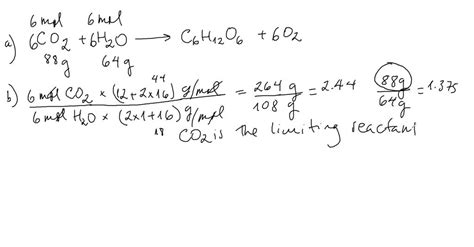 6 mol 6 mol
a) 6CO2 + 6H2O → C6H12O6 + 6O2
88g 64g
44
b) 6 mol CO2 × (12+2×16) g/mol / 6 mol H2O × (2×1+16) g/mol = 264 g / 108 g = 2.44 88g / 64g = 1.375
18
CO2 is the limiting reactant